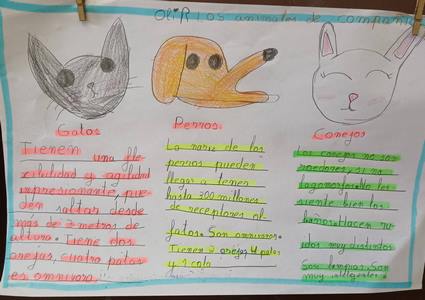 OliRIOS animales de compañia
Gatos
Tienen una fle
xibilidad y agilidad
impresionante, pue-
den saltar desde
más de 2 metros de
altura. Tiene dos
orejas, cuatro patas
es omnivora.
Perros
La nariz de los
perros pueden
llegar a tener
hasta 300 millones
de receptores ol-
fatos. Son omnivoros.
Tienen 2 orejas 4 patas
y 1 cola
Conejos
Los conejos no son
roedores, si no
lagomorfos. No les
siente bien los
baños. Hacen ru-
idos muy distintos
Son limpios, Son
muy inteligentes.